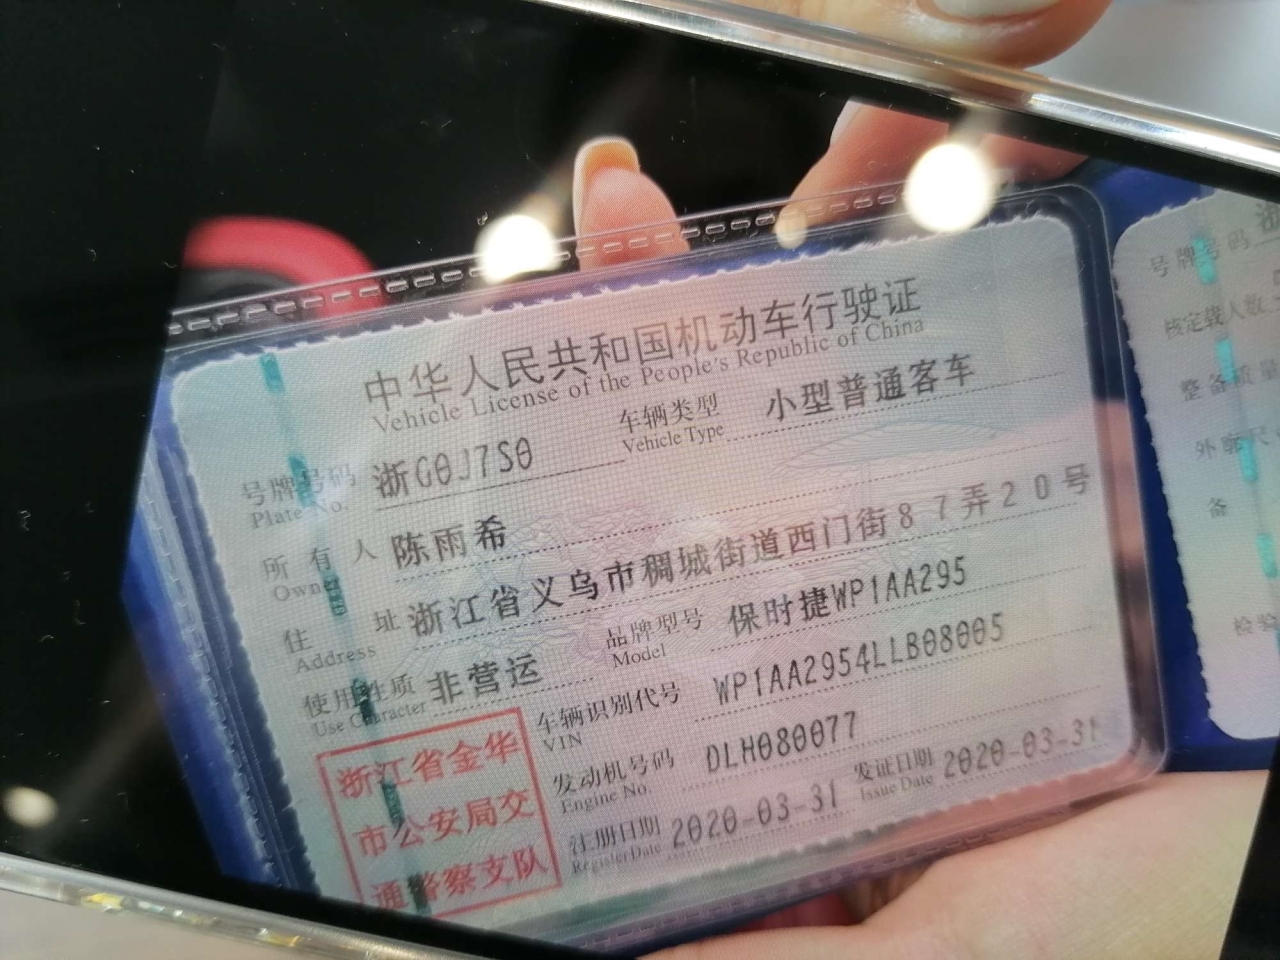 中华人民共和国机动车行驶证
Vehicle License of the People's Republic of China
号牌号码 浙G0J7S0 车辆类型 小型普通客车
Plate No. Vehicle Type
所有人 陈雨希
Owner
住址 浙江省义乌市稠城街道西门街87弄20号
Address
使用性质 非营运 品牌型号 保时捷WP1AA295
Use Character Model
车辆识别代号 WP1AA2954LLB08005
VIN
发动机号码 DLH080077
Engine No.
注册日期 2020-03-31 发证日期 2020-03-31
Register Date Issue Date
浙江省金华
市公安局交
通警察支队
号牌号码
核定载人数
整备质量
外廓尺
备
检验